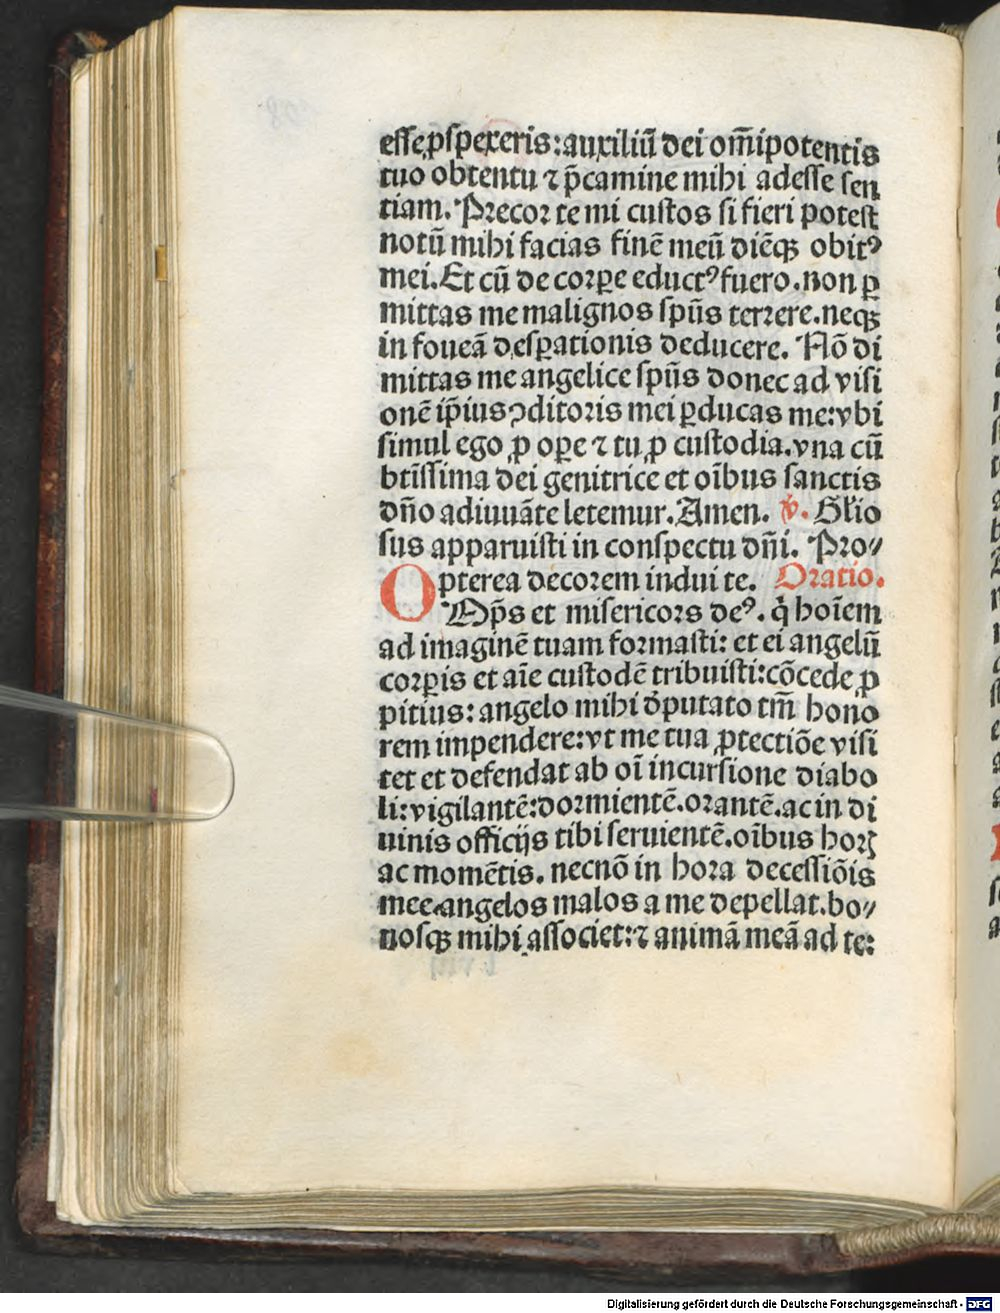 esse ꝓspexeris: auxiliū dei om̄ipotentis
tuo obtentu ⁊ p̄camine mihi adesse sen
tiam. Precor te mi custos si fieri potest
notū mihi facias finē meū diēqꝫ obitꝰ
mei. Et cū de corꝑe eductꝰ fuero. non ꝑ
mittas me malignos spūs terrere. neqꝫ
in foueā desꝑationis deducere. Nō di
mittas me angelice spūs donec ad visi
onē ip̄ius ꝯditoris mei ꝑducas me: vbi
simul ego ꝓ oꝑe ⁊ tu ꝓ custodia. vna cū
btīssima dei genitrice et oībus sanctis
dn̄o adiuuāte letemur. Amen. ℣. Gl̄io
sus apparuisti in conspectu dn̄i. Pro⸗
pterea decorem indui te. Oratio.
OMp̄s et misericors deꝰ. q̇ hoīem
ad imaginē tuam formasti: et ei angelū
corꝑis et aīe custodē tribuisti: cōcede ꝓ
pitius: angelo mihi d̄putato tm̄ hono
rem impendere: vt me tua ꝓtectiōe visi
tet et defendat ab oī incursione diabo
li: vigilantē: dormientē. orantē. ac in di
uinis officijs tibi seruientē. oībus horꝝ
ac momētis. necnō in hora decessiōis
mee. angelos malos a me depellat. bo⸗
nosqꝫ mihi associet: ⁊ animā meā ad te:
Digitalisierung gefördert durch die Deutsche Forschungsgemeinschaft - DFG